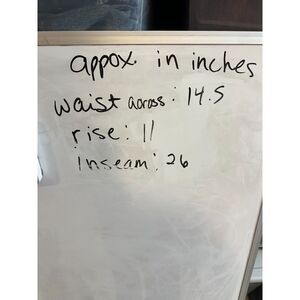 appox. in inches
waist across: 14.5
rise: 11
inseam: 26